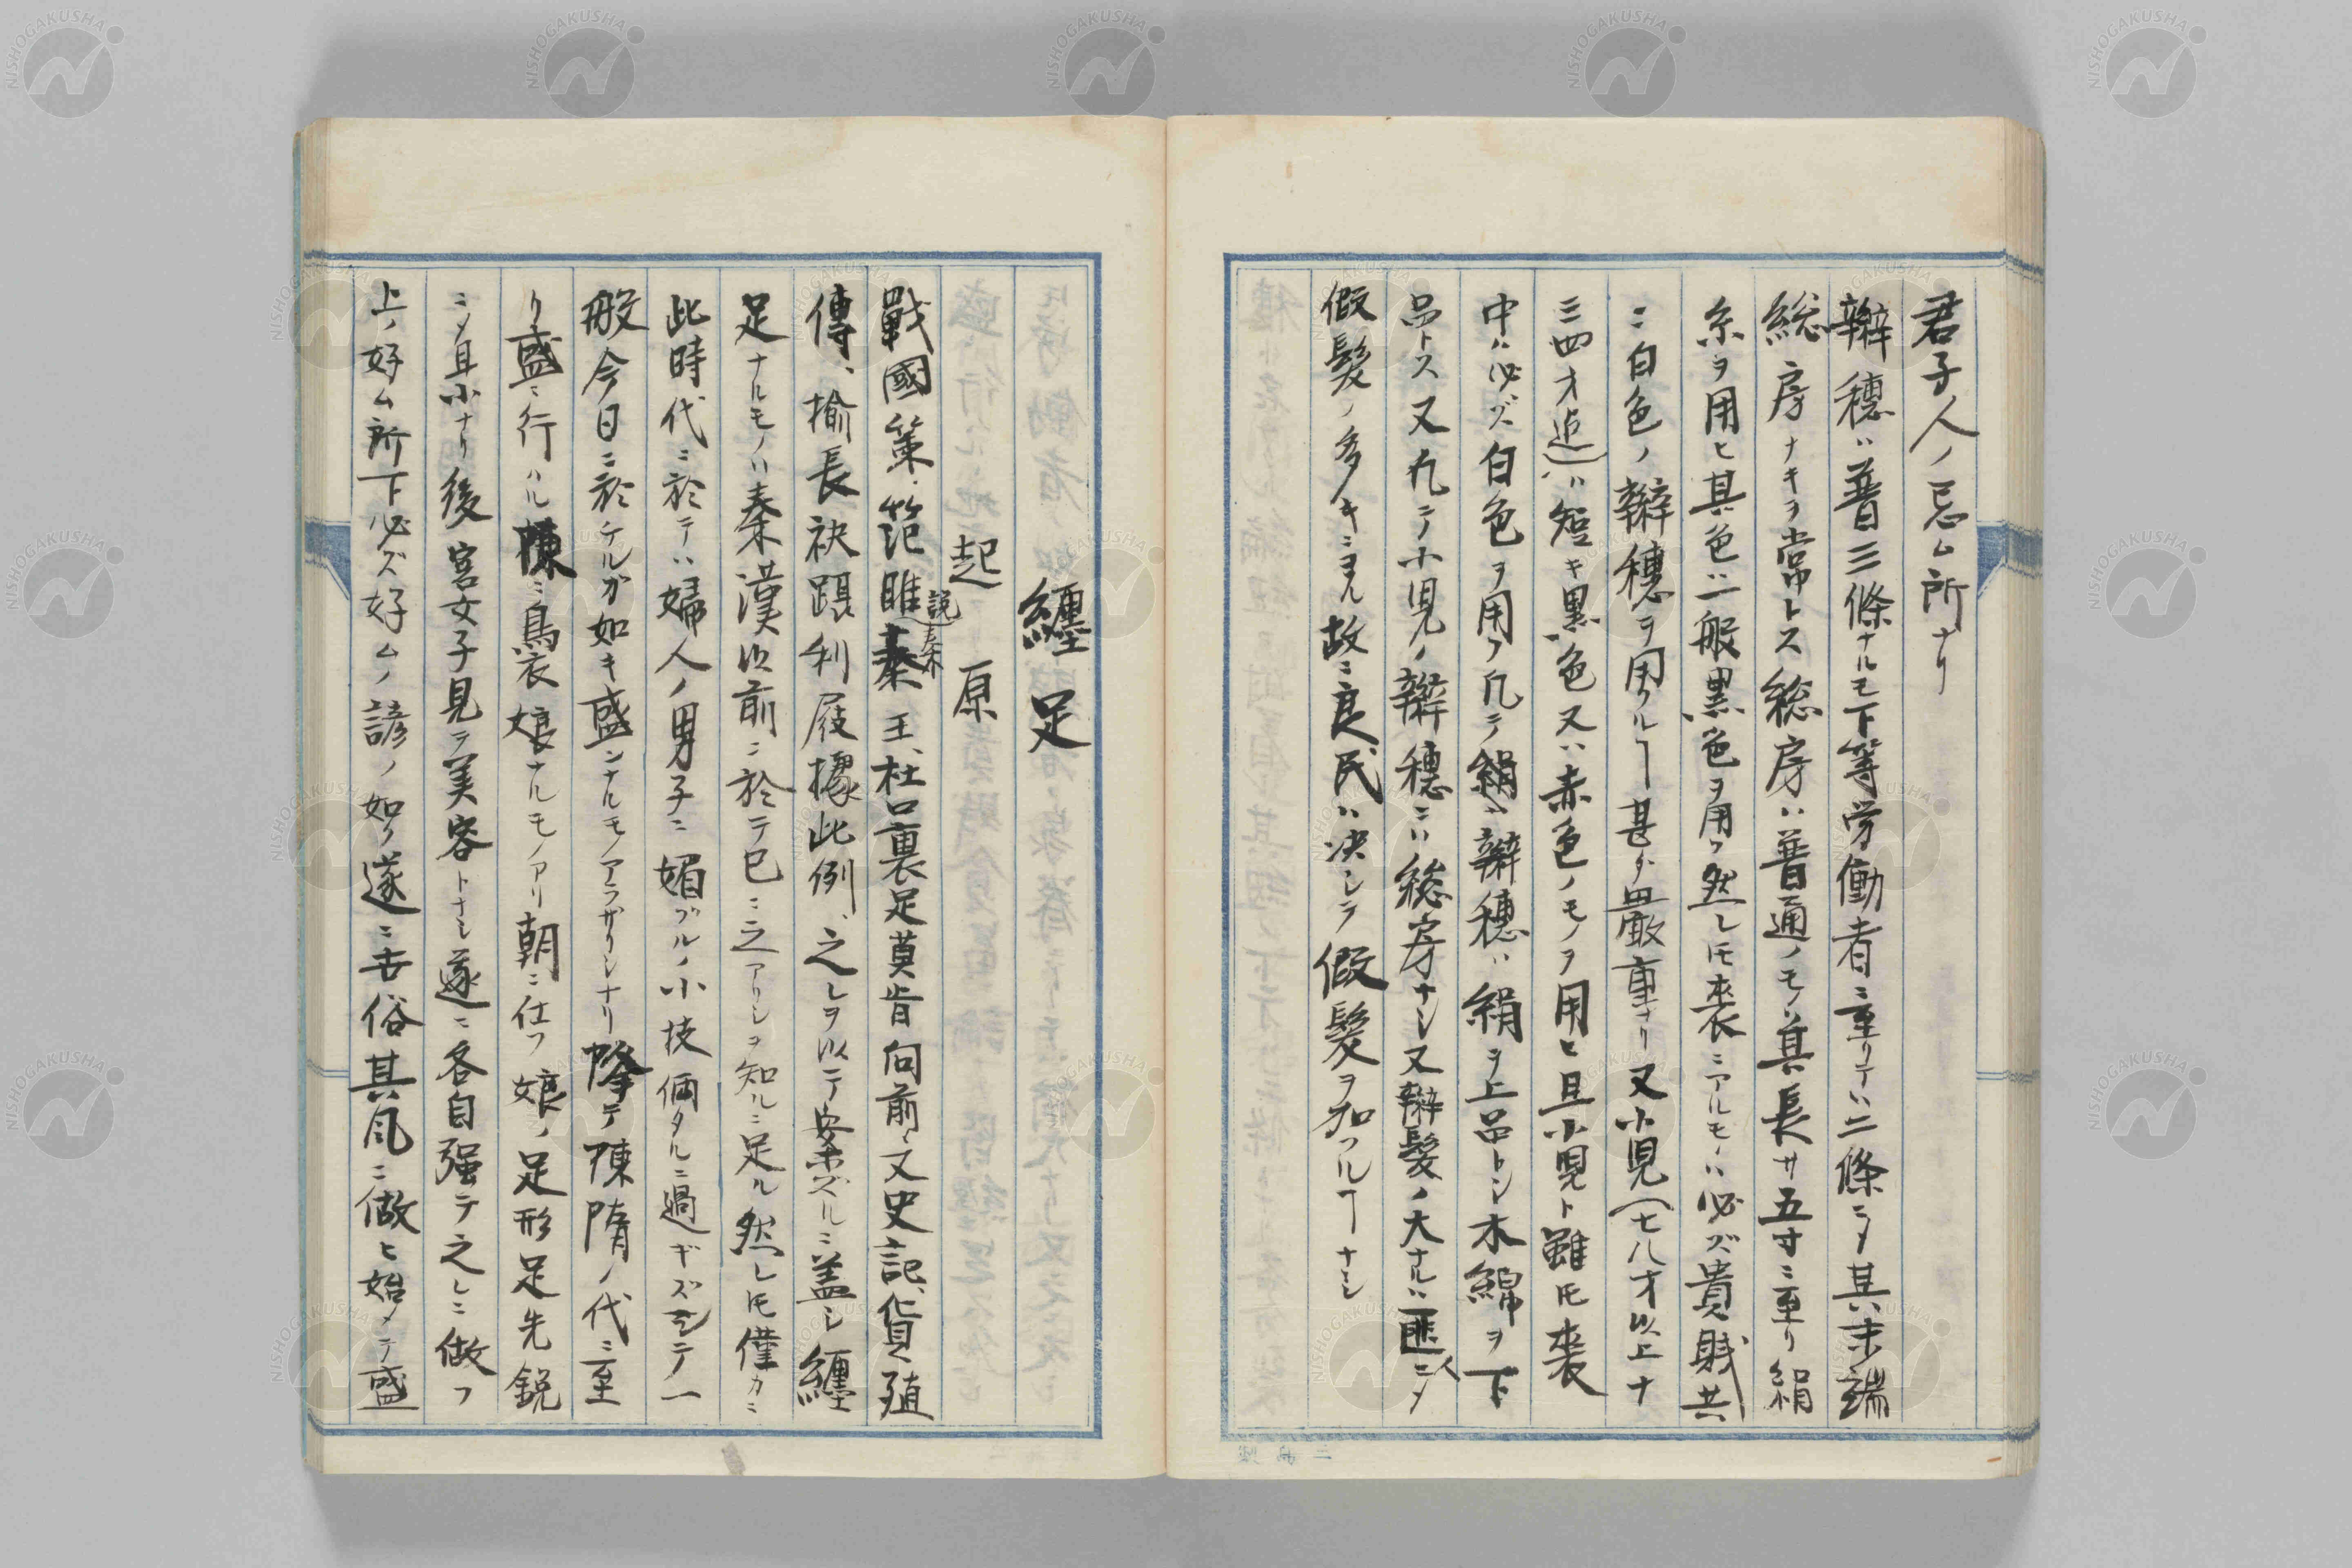 君子人ノ忌ム所ナリ
辮穗ハ普三條ナルモ下等労働者ニ至リテハ二條ニメ其末端
総房ナキヲ常トス総房ハ普通ノモノ其長サ五寸ニ至リ絹
糸ヲ用ヒ其色ハ一般黒色ヲ用フ然レ𪜈裘ニアルモノハ必ズ貴賎共
ニ白色ノ辮穗ヲ用フルヿ甚ダ嚴重ナリ又小児(七八才以上十
三四才迠)ハ短キ黒色又ハ赤色ノモノヲ用ヒ且小児ト雖𪜈裘
中ハ必ズ白色ヲ用フ凡テ絹ニ辮穗ハ絹ヲ上品トシ木綿ヲ下
品トス又凡テ小児ノ辮穗ニハ総房ナシ又辮髮ノ大ナルハ匪人ニメ
假髮ノ多キニヨル故ニ良民ハ决シテ假髮ヲ加フルヿナシ
纏足
起原
戰國策、範睢説秦秦王、杜口裏足莫肯向前、又史記、貨殖
傳、揄長袂蹑利屐據此例、之レヲ以テ案ズルニ盖シ纏
足ナルモノハ秦漢以前ニ於テ已ニ之アリシヲ知ルニ足ル然レ𪜈僅カニ
此時代ニ於テハ婦人ノ男子ニ媚ブルノ小技倆タルニ過ギズシテ一
般今日ニ於ケルガ如キ盛ンナルモノアラザリシナリ降テ陳隋ノ代ニ至
リ盛ニ行ハル陳ニ烏衣娘ナルモノアリ朝ニ仕フ娘ノ足形足先鋭
ニメ且小ナリ後宮女子見テ美容トナシ遂ニ各自强テ之レニ做フ
上ノ好ム所下必ズ好ムノ諺ノ如ク遂ニ古俗其風ニ做ヒ始メテ盛